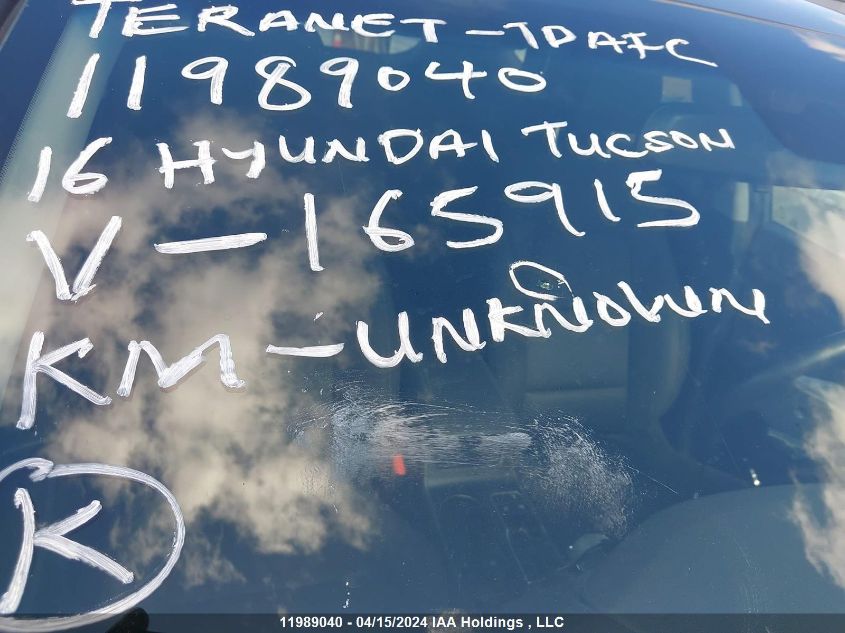 TERANET-TDAFC
11989040
16 HYUNDAI TUCSON
V-165915
KM-UNKNOWN
K
11989040 - 04/15/2024 IAA Holdings , LLC